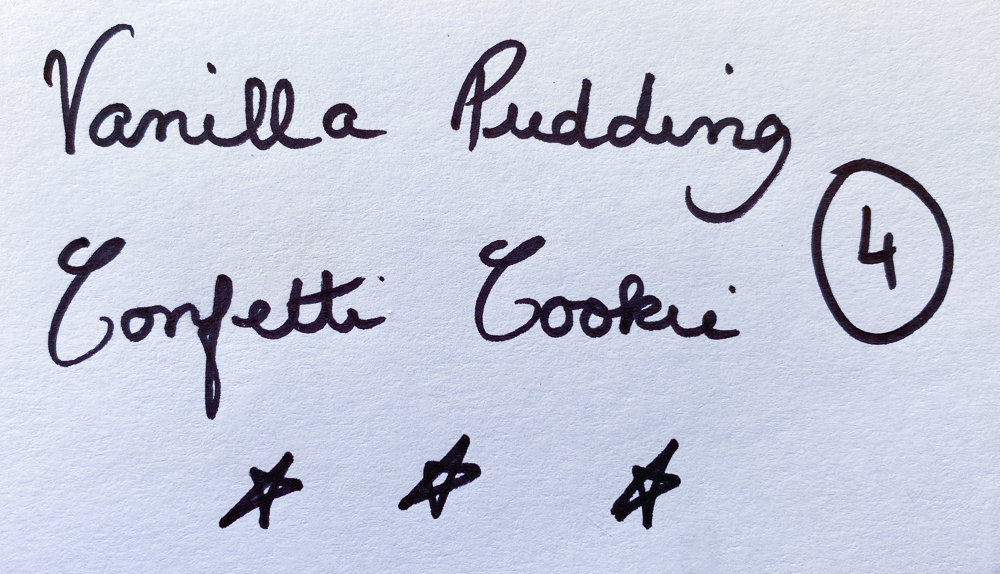 Vanilla Pudding
Confetti Cookie
4